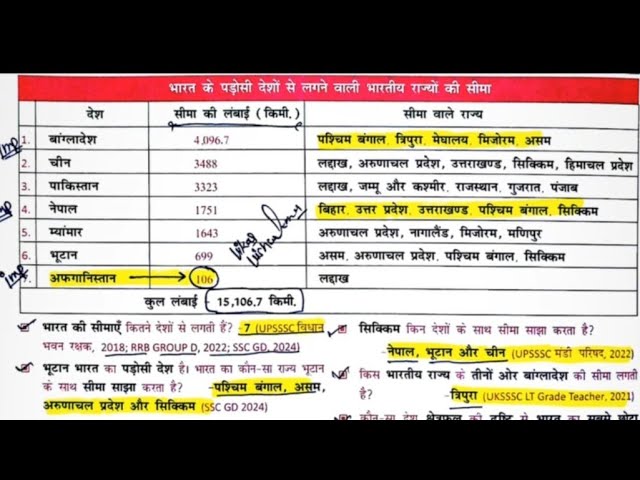 भारत के पड़ोसी देशों से लगने वाली भारतीय राज्यों की सीमा
देश सीमा की लंबाई (किमी.) सीमा वाले राज्य
1. बांग्लादेश 4,096.7 पश्चिम बंगाल, त्रिपुरा, मेघालय, मिजोरम, असम
2. चीन 3488 लद्दाख, अरुणाचल प्रदेश, उत्तराखण्ड, सिक्किम, हिमाचल प्रदेश
3. पाकिस्तान 3323 लद्दाख, जम्मू और कश्मीर, राजस्थान, गुजरात, पंजाब
4. नेपाल 1751 बिहार, उत्तर प्रदेश, उत्तराखण्ड, पश्चिम बंगाल, सिक्किम
5. म्यांमार 1643 अरुणाचल प्रदेश, नागालैंड, मिजोरम, मणिपुर
6. भूटान 699 असम, अरुणाचल प्रदेश, पश्चिम बंगाल, सिक्किम
7. अफगानिस्तान 106 लद्दाख
कुल लंबाई - 15,106.7 किमी.
Imp
Imp
Imp
भारत की सीमाएँ कितने देशों से लगती है? -7 (UPSSSC विधान
भवन रक्षक, 2018; RRB GROUP D, 2022; SSC GD, 2024)
भूटान भारत का पड़ोसी देश है। भारत का कौन-सा राज्य भूटान
के साथ सीमा साझा करता है? -पश्चिम बंगाल, असम,
अरुणाचल प्रदेश और सिक्किम (SSC GD 2024)
सिक्किम किन देशों के साथ सीमा साझा करता है?
-नेपाल, भूटान और चीन (UPSSSC मंडी परिषद, 2022)
किस भारतीय राज्य के तीनों ओर बांग्लादेश की सीमा लगती
है? -त्रिपुरा (UKSSSC LT Grade Teacher, 2021)
कौन-सा देश क्षेत्रफल की दृष्टि से भारत का सबसे छोटा